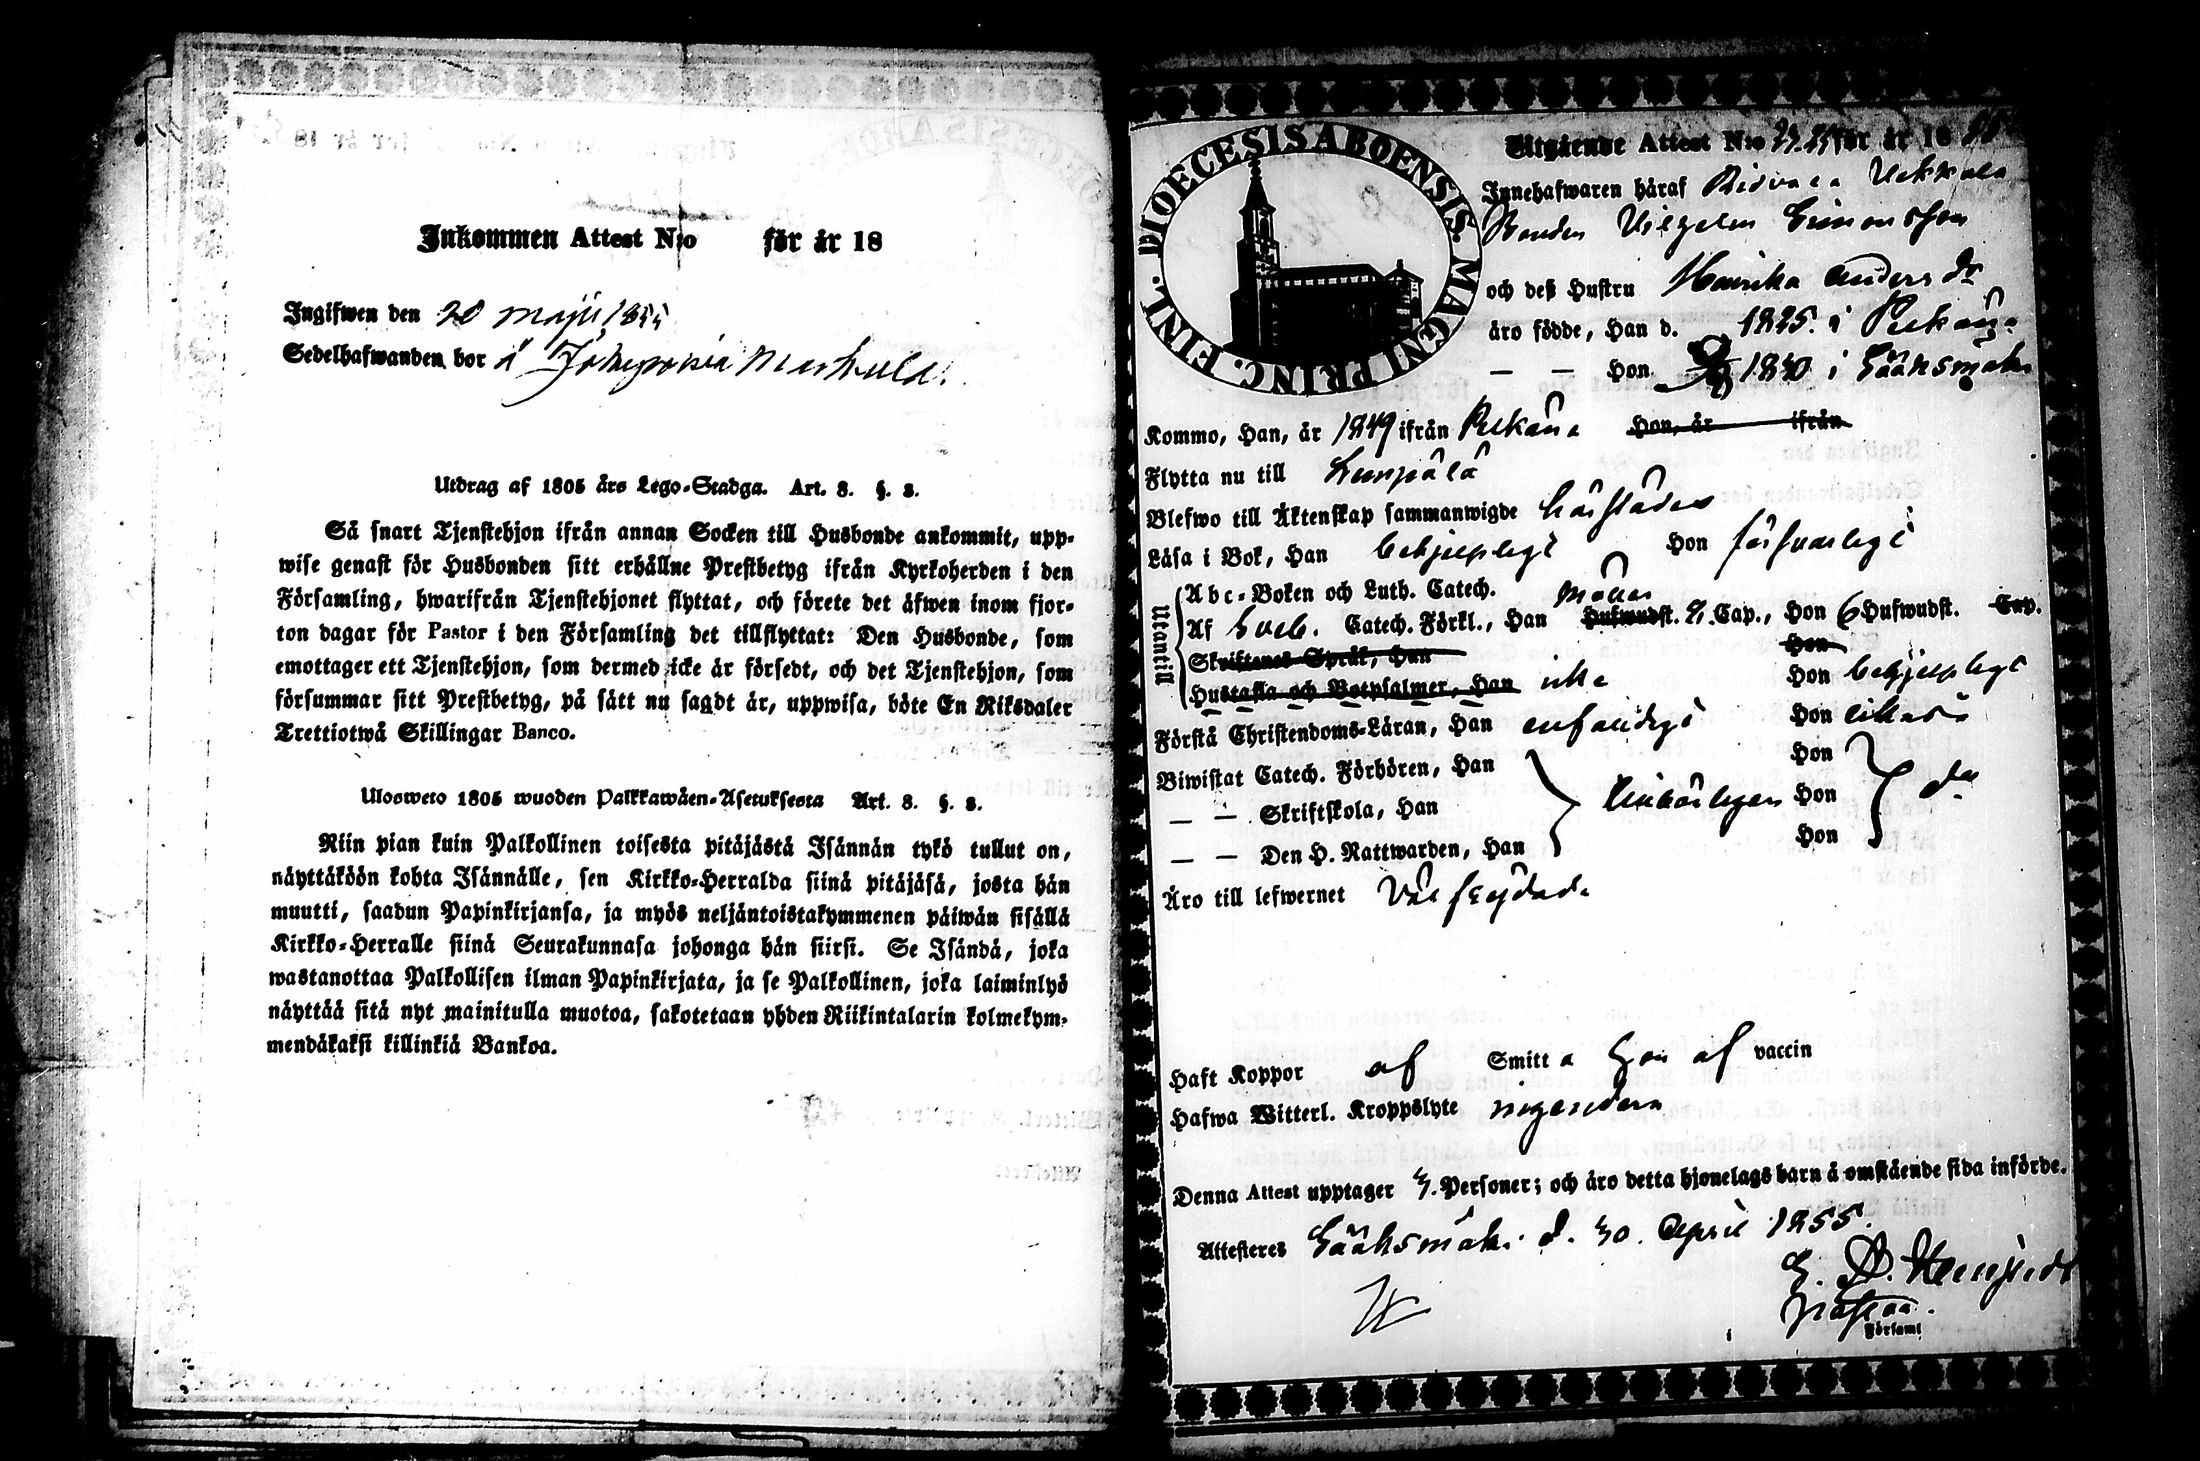 Inkommen Attest N:o för år 18
Ingifwen den 20 maji 1855
Sedelhafwanden bor å Markula.
Utdrag af 1805 års Lego-Stadga. Art. 8. §. 2.
Så snart Tjenstehjon ifrån annan Socken till Husbonde ankommit, upp-
wise genast för Husbonden sitt erhållne Prestbetyg ifrån Kyrkoherden i den
Församling, hwarifrån Tjenstehjonet flyttat, och förete det äfwen inom fjor-
ton dagar för Pastor i den Församling det tillflyttat: Den Husbonde, som
emottager ett Tjenstehjon, som dermed icke är försedt, och det Tjenstehjon, som
försummar sitt Prestbetyg, på sätt nu sagdt är, uppwisa, böte En Riksdaler
Trettiotwå Skillingar Banco.
Ulosweto 1805 wuoden Palkkawäen-Asetuksesta Art. 8. §. 2.
Niin pian kuin Palkollinen toisesta pitäjästä Isännän tykö tullut on,
näyttäköön kohta Isännälle, sen Kirkko-Herralda siinä pitäjäsä, josta hän
muutti, saadun Papinkirjansa, ja myös neljäntoistakymmenen päiwän sisällä
Kirkko-Herralle siinä Seurakunnasa johonga hän siirsi. Se Isändä, joka
wastanottaa Palkollisen ilman Papinkirjata, ja se Palkollinen, joka laiminlyö
näyttää sitä nyt mainitulla muotoa, sakotetaan yhden Riikintalarin kolmekym-
mendäkaksi killinkiä Bankoa.
DIOECESIS ABOENSIS. MAGNI PRINC. FINL.
Utgående Attest N:o för år 18 55
Innehafwaren häraf Ridvala Uekkola
Bonden Vilhelm Simonsson
och deß Hustru Henrika Andersdr
äro födde, Han d. 1825. i Pelkäne
— — Hon 1830 i Sääksmäki
Kommo, Han, år 1849 ifrån Pelkäne Hon, år ifrån
Flytta nu till Lempälä
Blefwo till Äktenskap sammanwigde härstädes
Läsa i Bok, Han behjelpligt Hon förswarligt
Utantill
Abc-Boken och Luth. Catech.
Af Sveb. Catech. Förkl., Han Hufwudst. 2. Cap., Hon 6 Hufwudst. Cap.
Skriftenes Språk, Han Hon
Hustafla och Botpsalmer, Han icke Hon behjelpligt
Förstå Christendoms-Läran, Han enfaldigt Hon likaså
Biwistat Catech. Förhören, Han Hon
— — Skriftskola, Han Hon do
— — Den H. Nattwarden, Han Hon
Äro till lefwernet Väl frejdade
Haft Koppor af Smitta Hon af vaccin
Hafwa Witterl. Kroppslyte ingendera
Denna Attest upptager Personer; och äro detta hjonelags barn å omstående sida införde.
Attesteres Sääksmäki d. 30. April 1855.
Församl